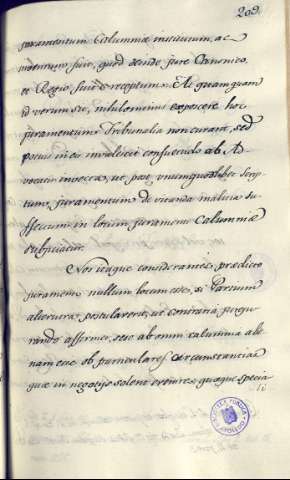 209.
juramentum Calumniæ institutum, ac
motivum fuit, quod deinde jure Canonico,
et Regio, fuit receptum. At quamquam
id verum sit, nihilominus exposcere hoc
juramentum Tribunalia non curant, sed
potius in eis invaluit consuetudo ab A
vocatis invecta, ut post unumquodlibet Scrip
tum, juramentum de vitanda malitia su
ffectum in locum juramenti Calumniæ
subjiciatur.
Nos itaque considerantes, prædicto
juramento nullum locum esse, si Partium
altera postulaverit, ut contraria jurejurando affirmet, se ab omni calumnia alie
nam esse ob particulares circumstancias
quæ in negotijs solent
specia